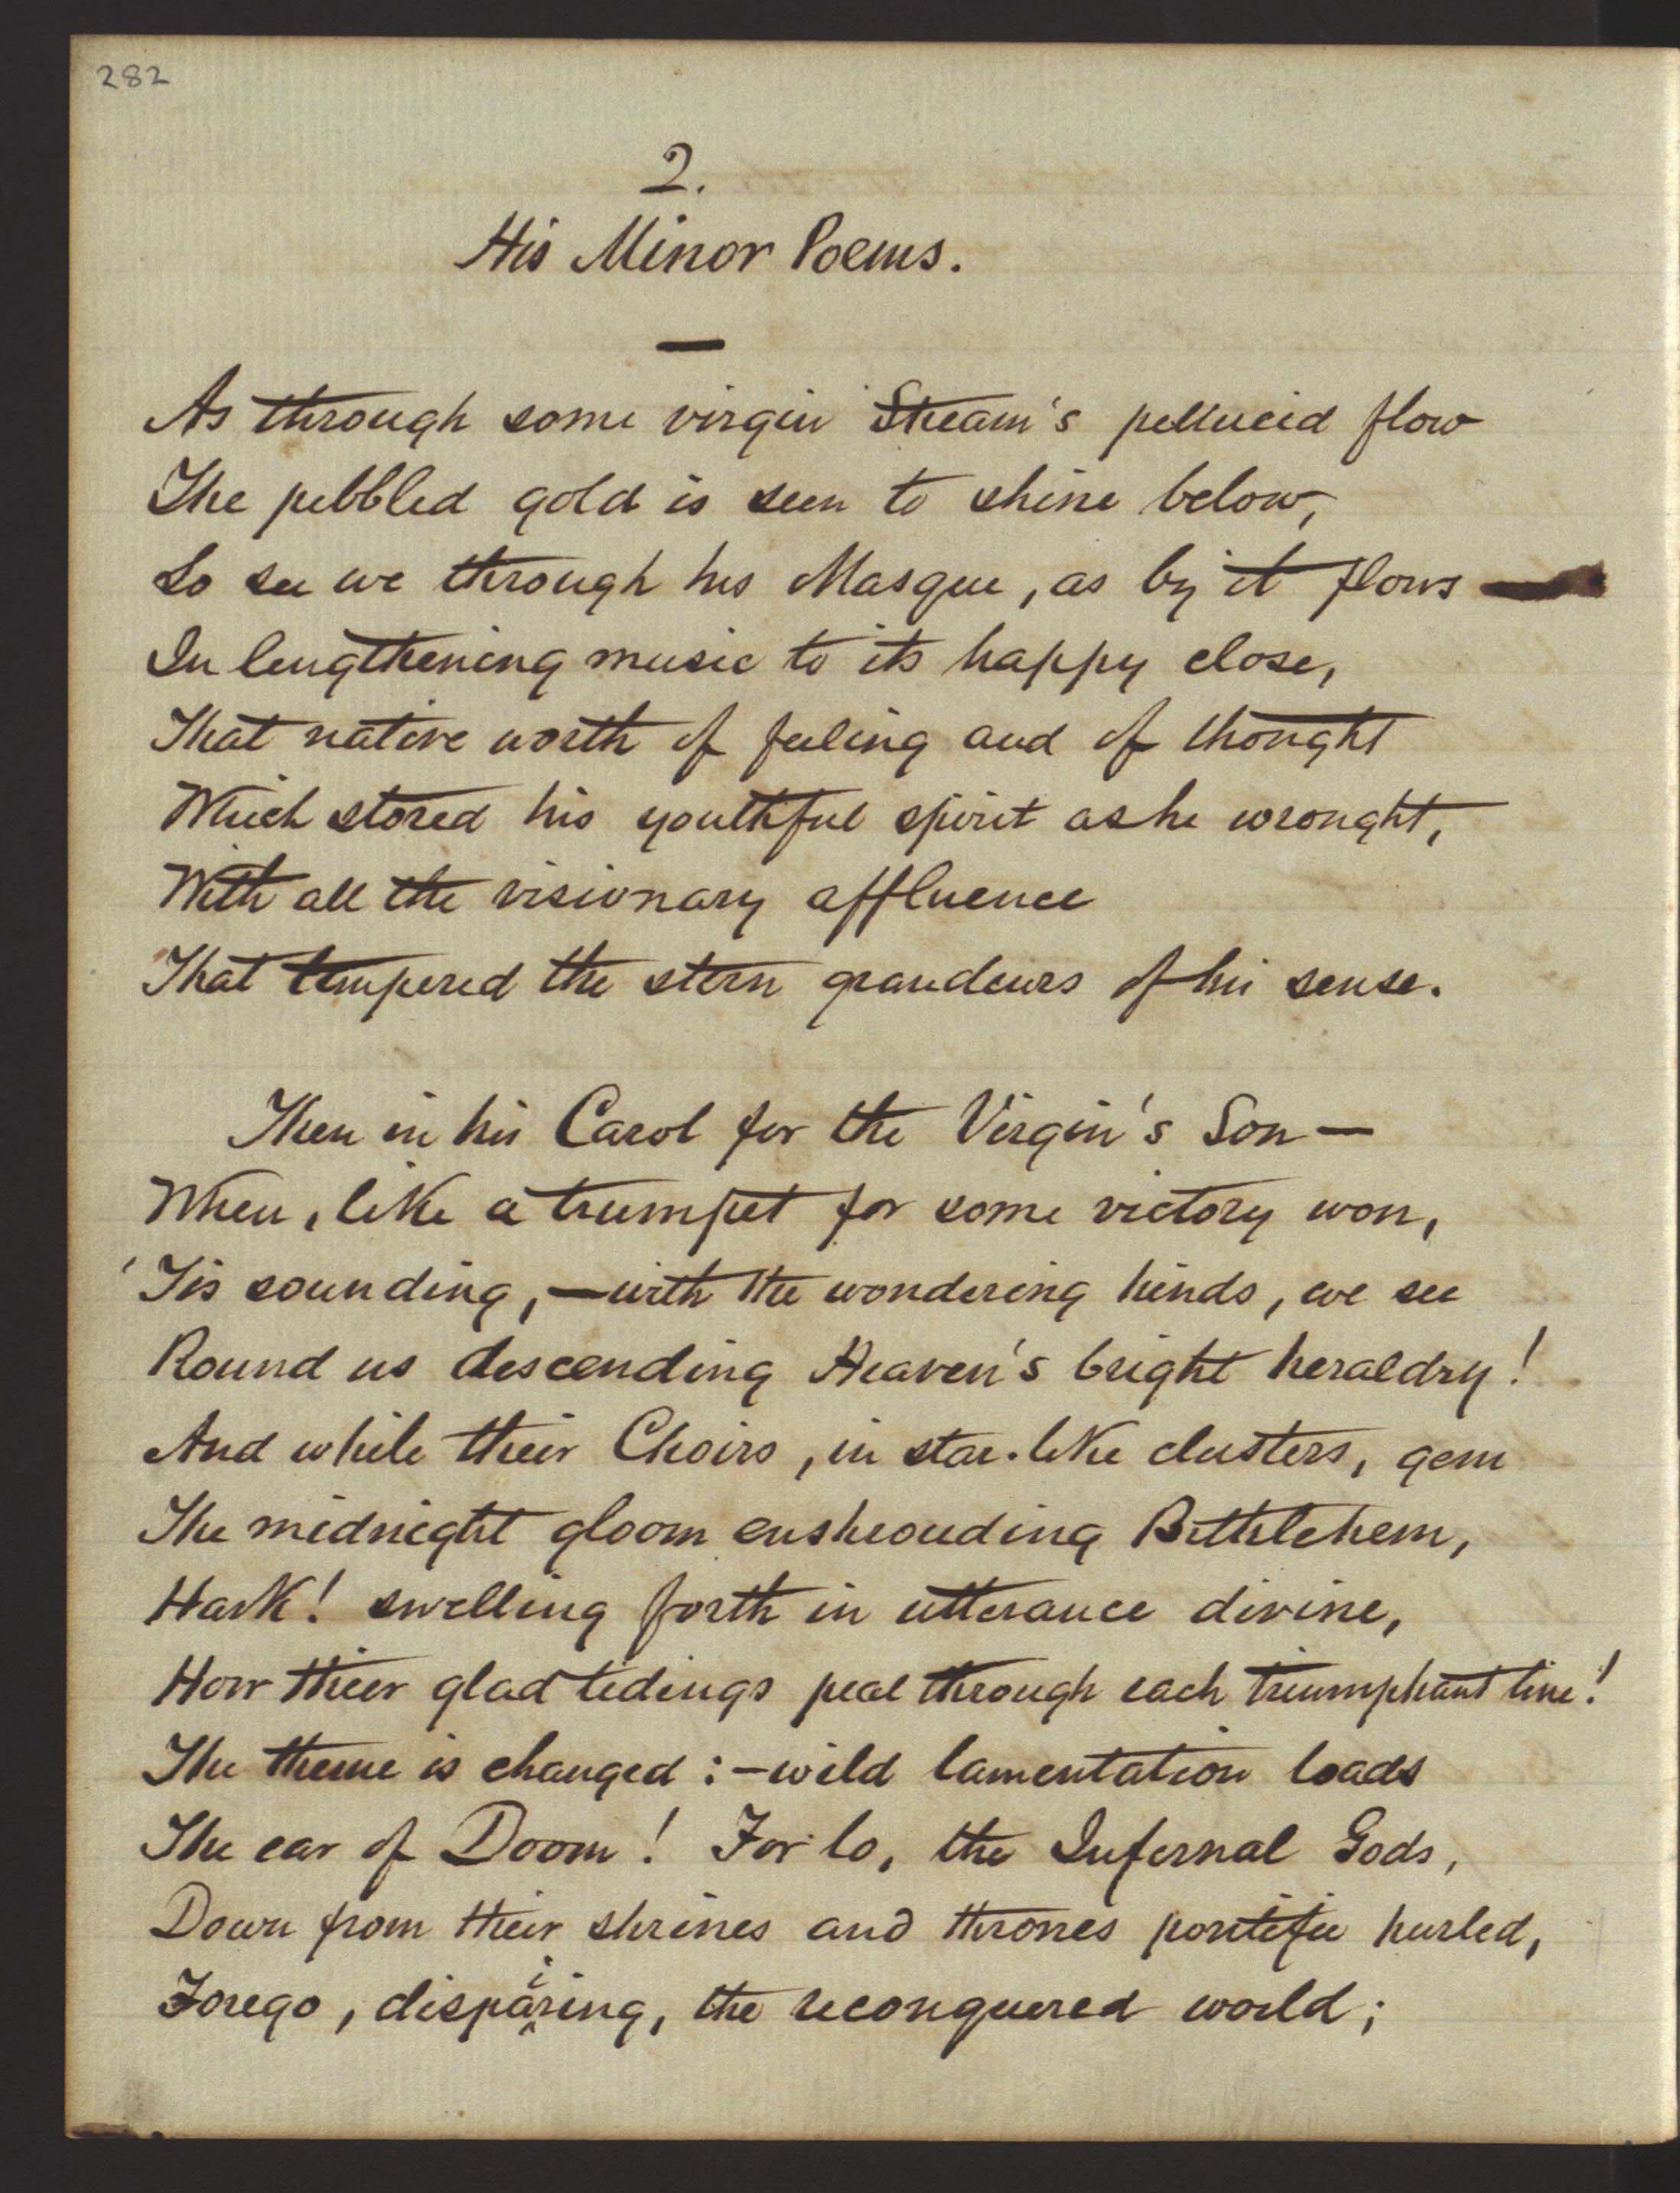 282
2.
His Minor Poems.
As through some virgin Stream's pellucid flow
The pebbled gold is seen to shine below,
So see we through his Masque, as by it flows —
In lengthening music to its happy close,
That native worth of feeling and of thought
Which stored his youthful spirit as he wrought,
With all the visionary affluence
That tempered the stern grandeurs of his sense.
Then in his Carol for the Virgin's Son —
When, like a trumpet for some victory won,
'Tis sounding, — with the wondering hinds, we see
Round us descending Heaven's bright heraldry!
And while their Choirs, in star-like clusters, gem
The midnight gloom enshrouding Bethlehem,
Hark! swelling forth in utterance divine,
How their glad tidings peal through each triumphant line!
The theme is changed: — wild lamentation loads
The ear of Doom! For lo, the Infernal Gods,
Down from their shrines and thrones pontific hurled,
Forego, dispairing, the reconquered world;